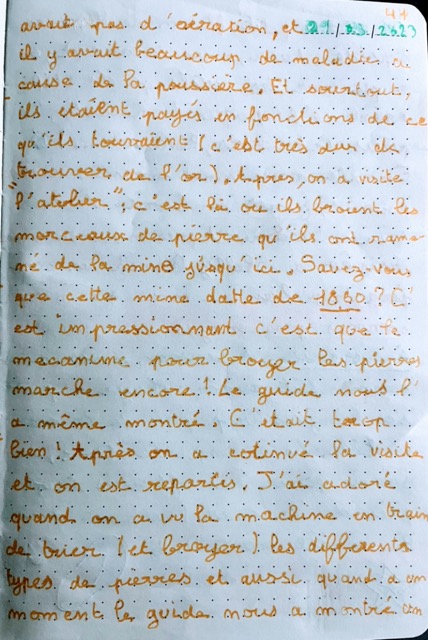 44
avait pas d'aération, et 21/03/2023
il y avait beaucoup de maladie a
cause de la poussière. Et sourtout,
ils étaient payés en fonctions de ce
qu'ils trouvaient (c'est très dur de
trouver de l'or). Apres, on a visité
"l'atelier", c'est là ou ils broient les
morceaux de pierre qu'ils ont rame-
né de la mine jusqu'ici. Savez-vous
que cette mine datte de 1860? C'
est impressionnant c'est que le
mecanime pour broyer les pierres
marche encore! Le guide nous l'
a même montré. C'était trop
bien! Après on a cotinué la visite
et on est repartis. J'ai adoré
quand on a vu la machine en train
de trier (et broyer) les differents
types de pierres et aussi quand a un
moment le guide nous a montré un